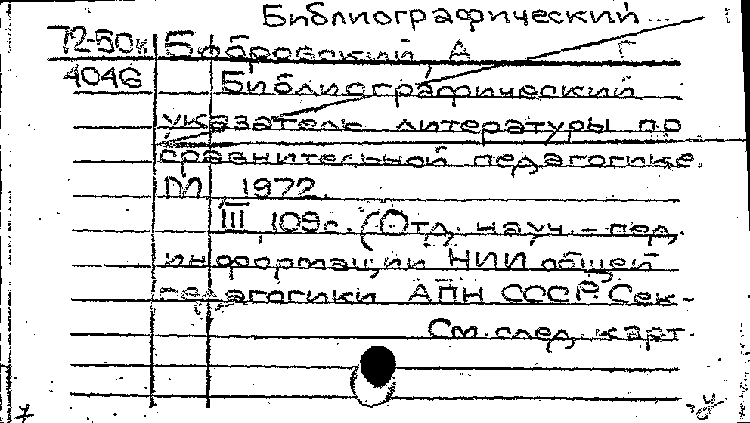 Библиографический
72-50к Бобровский А Г
4046 Библиографический
указатель литературы по
сравнительной педагогике.
М 1972.
III, 109с. (Отд. науч-пед.
информации НИИ общей
педагогики АПН СССР. Сек-
См. след. карт.